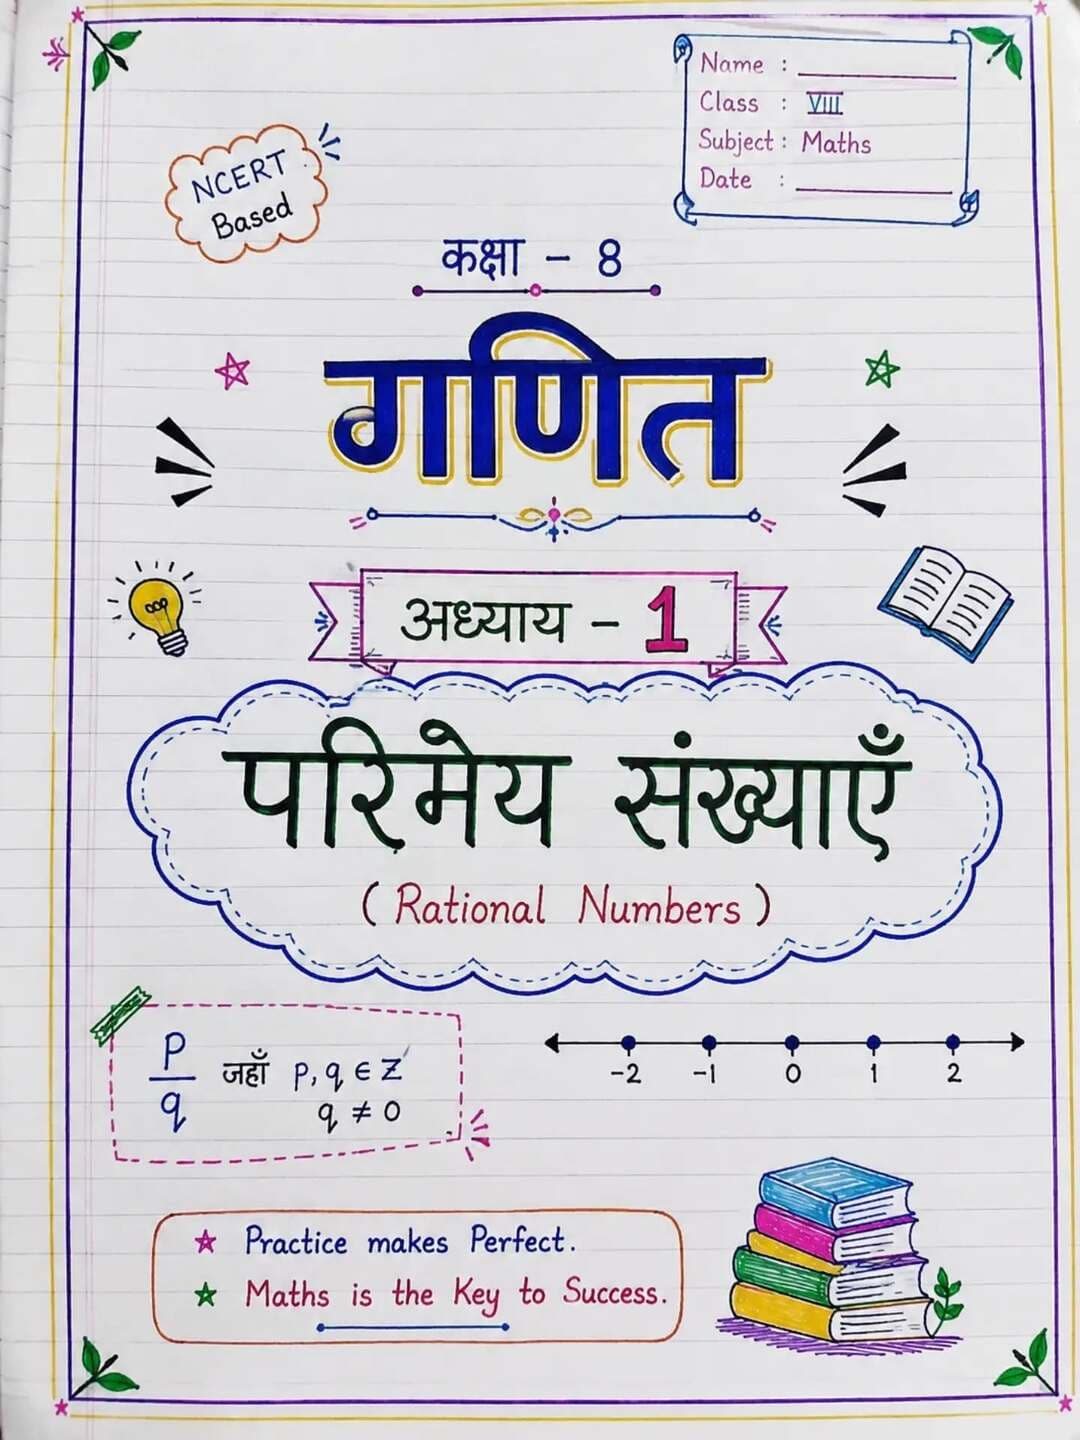 Name : 
Class : VIII
Subject : Maths
Date : 
NCERT
Based
कक्षा - 8
गणित
अध्याय - 1
परिमेय संख्याएँ
( Rational Numbers )
p/q जहाँ p, q ∈ Z
q ≠ 0
-2 -1 0 1 2
Practice makes Perfect.
Maths is the Key to Success.